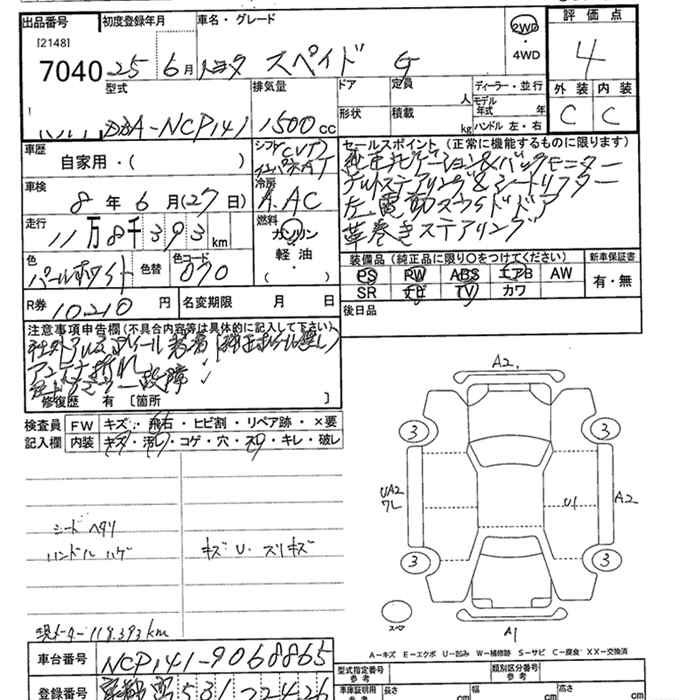 出品番号 初度登録年月 車名・グレード 2WD ・ 4WD 評価点
[2148]
7040 25年6月 トヨタ スペイド G 4
型式 排気量 ドア 定員 人 ディーラー・並行 外装 内装
DBA-NCP141 1500cc 形状 積載 kg モデル年式 年 ハンドル 左・右 C C
車歴 自家用・( ) シフト CVT セールスポイント (正常に機能するものに限ります)
純正ナビゲーション&バックモニター
車検 8年6月(27日) 冷房 A.AC チルトステアリング&シートリフター
左電動スライドドア
走行 11万8千393km 燃料 ガソリン 軽油 ・( ) 革巻きステアリング
色 パールホワイト 色替 色コード 070
装備品 (純正品に限り○をつけてください) 新車保証書
PS PW ABS エアB AW 有・無
SR ナビ TV カワ
R券 10,210円 名変期限 月 日 後日品
注意事項申告欄 (不具合内容等は具体的に記入して下さい)
社外アルミホイール装着(純正ホイール無し)
アンテナ折れ
修復歴 有 [箇所 ]
検査員 FW キズ・飛石・ヒビ割・リペア跡・×要
記入欄 内装 キズ・汚レ・コゲ・穴・スリ・キレ・破レ
シート ヘタリ
ハンドル ハゲ キズ U. スリキズ
現メーター119,393km
A2
3 3
UA2 ワレ U1 A2
3 3
スペア A1
A-キズ E-エクボ U-凹み W-補修跡 S-サビ C-腐食 XX-交換済
車台番号 NCP141-9068865
型式指定番号 参考 類別区分番号 参考
登録番号 531 2426
車庫証明用 参考 長さ cm 幅 cm 高さ cm